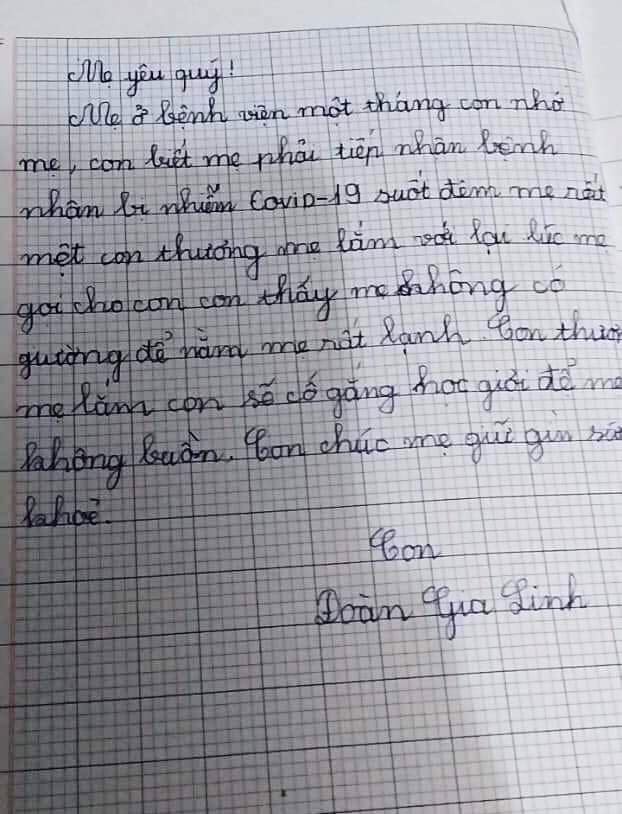 Mẹ yêu quý!
Mẹ ở bệnh viện một tháng con nhớ
mẹ, con biết mẹ phải tiếp nhận bệnh
nhân bị nhiễm Covid-19 suốt đêm mẹ rất
mệt con thương mẹ lắm với lại lúc mẹ
gọi cho con con thấy mẹ không có
gường để nằm mẹ rất lạnh. Con thương
mẹ lắm con sẽ cố gắng học giỏi để mẹ
không buồn. Con chúc mẹ giữ gìn sức
khoẻ.
Con
Đoàn Gia Linh